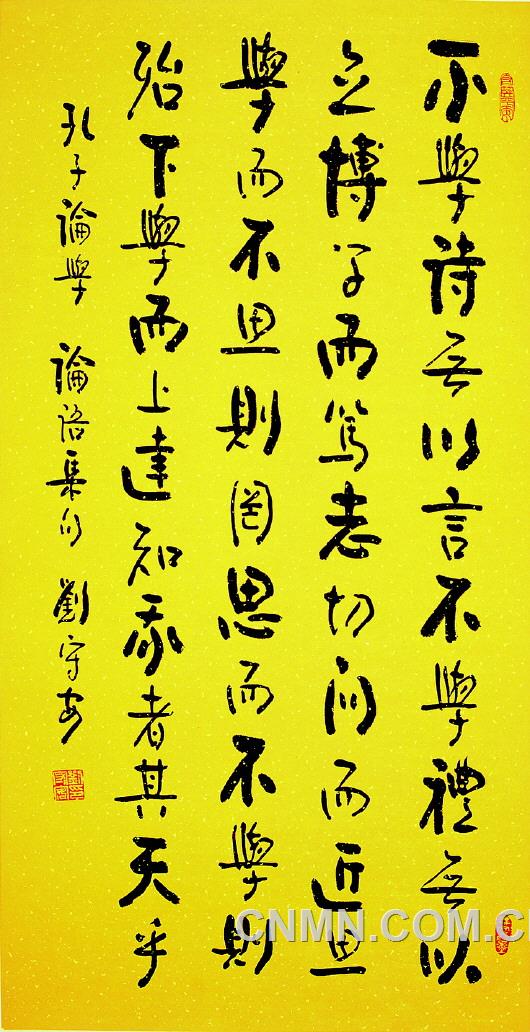 不學詩無以言不學禮無以
立博学而篤志切问而近思
學而不思則罔思而不學則
殆下學而上達知我者其天乎
孔子論學 論語集句 劉守安
CNMN.COM.C